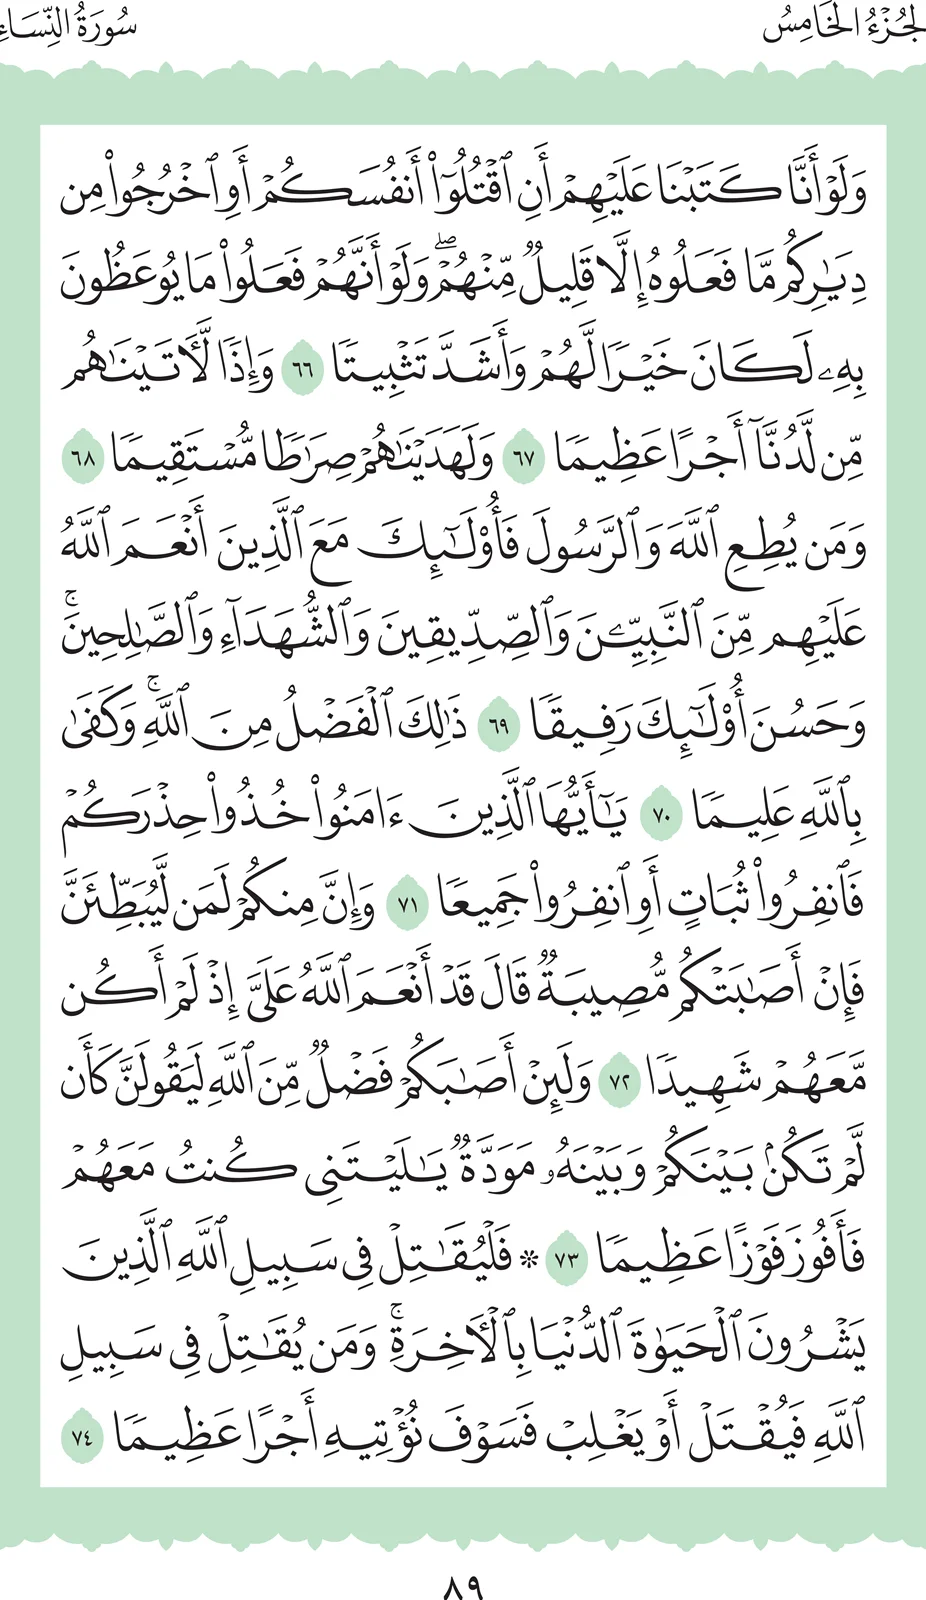 الجُزْءُ الخَامِسُ
سُورَةُ النِّسَاءِ
وَلَوْ أَنَّا كَتَبْنَا عَلَيْهِمْ أَنِ ٱقْتُلُوٓا۟ أَنفُسَكُمْ أَوِ ٱخْرُجُوا۟ مِن
دِيَـٰرِكُم مَّا فَعَلُوهُ إِلَّا قَلِيلٌ مِّنْهُمْ ۖ وَلَوْ أَنَّهُمْ فَعَلُوا۟ مَا يُوعَظُونَ
بِهِۦ لَكَانَ خَيْرًا لَّهُمْ وَأَشَدَّ تَثْبِيتًا ٦٦ وَإِذًا لَّـَٔاتَيْنَـٰهُم
مِّن لَّدُنَّآ أَجْرًا عَظِيمًا ٦٧ وَلَهَدَيْنَـٰهُمْ صِرَٰطًا مُّسْتَقِيمًا ٦٨
وَمَن يُطِعِ ٱللَّهَ وَٱلرَّسُولَ فَأُو۟لَـٰٓئِكَ مَعَ ٱلَّذِينَ أَنْعَمَ ٱللَّهُ
عَلَيْهِم مِّنَ ٱلنَّبِيِّـۧنَ وَٱلصِّدِّيقِينَ وَٱلشُّهَدَآءِ وَٱلصَّـٰلِحِينَ ۚ
وَحَسُنَ أُو۟لَـٰٓئِكَ رَفِيقًا ٦٩ ذَٰلِكَ ٱلْفَضْلُ مِنَ ٱللَّهِ ۚ وَكَفَىٰ
بِٱللَّهِ عَلِيمًا ٧٠ يَـٰٓأَيُّهَا ٱلَّذِينَ ءَامَنُوا۟ خُذُوا۟ حِذْرَكُمْ
فَٱنفِرُوا۟ ثُبَاتٍ أَوِ ٱنفِرُوا۟ جَمِيعًا ٧١ وَإِنَّ مِنكُمْ لَمَن لَّيُبَطِّئَنَّ
فَإِنْ أَصَـٰبَتْكُم مُّصِيبَةٌ قَالَ قَدْ أَنْعَمَ ٱللَّهُ عَلَىَّ إِذْ لَمْ أَكُن
مَّعَهُمْ شَهِيدًا ٧٢ وَلَئِنْ أَصَـٰبَكُمْ فَضْلٌ مِّنَ ٱللَّهِ لَيَقُولَنَّ كَأَن
لَّمْ تَكُنۢ بَيْنَكُمْ وَبَيْنَهُۥ مَوَدَّةٌ يَـٰلَيْتَنِى كُنتُ مَعَهُمْ
فَأَفُوزَ فَوْزًا عَظِيمًا ٧٣ ۞ فَلْيُقَـٰتِلْ فِى سَبِيلِ ٱللَّهِ ٱلَّذِينَ
يَشْرُونَ ٱلْحَيَوٰةَ ٱلدُّنْيَا بِٱلْـَٔاخِرَةِ ۚ وَمَن يُقَـٰتِلْ فِى سَبِيلِ
ٱللَّهِ فَيُقْتَلْ أَوْ يَغْلِبْ فَسَوْفَ نُؤْتِيهِ أَجْرًا عَظِيمًا ٧٤
٨٩